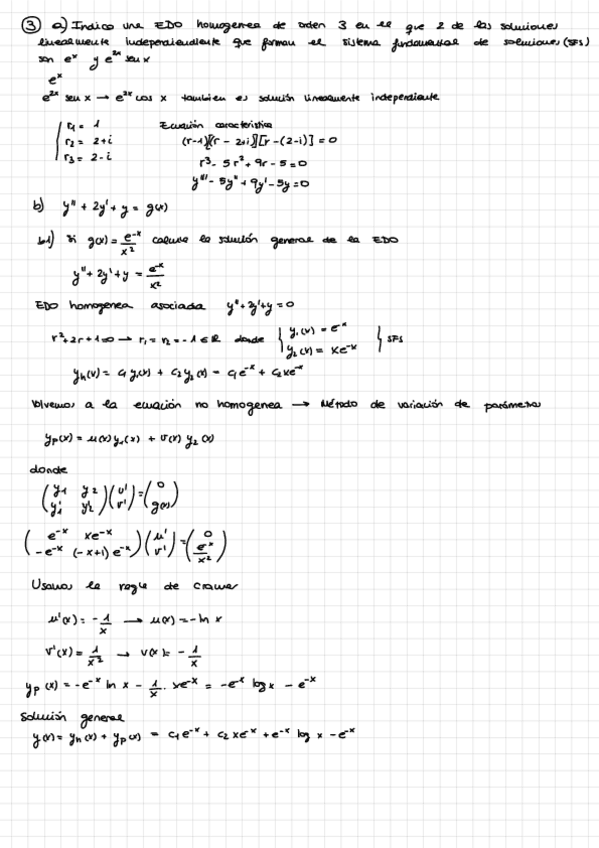 3 a) Indica una EDO homogenea de orden 3 en el que 2 de las soluciones
linealmente independiendiente que forman el sistema fundamental de soluciones (SFS)
son e^x y e^{2x} sen x
e^x
e^{2x} sen x → e^{2x} cos x tambien es solución linealmente independiente
r₁ = 1 Ecuación característica
r₂ = 2+i (r-1)[(r - 2+i)][r-(2-i)] = 0
r₃ = 2-i r³ - 5r² + 9r - 5 = 0
y''' - 5y'' + 9y' - 5y = 0
b) y'' + 2y' + y = g(x)
b1) Si g(x) = e^{-x}/x² calcula la solución general de la EDO
y'' + 2y' + y = e^{-x}/x²
EDO homogenea asociada y'' + 2y' + y = 0
r² + 2r + 1 = 0 → r₁ = r₂ = -1 ∈ ℝ donde { y₁(x) = e^{-x} } SFS
y₂(x) = xe^{-x}
y_h(x) = c₁y₁(x) + c₂y₂(x) = c₁e^{-x} + c₂xe^{-x}
Volvemos a la ecuación no homogenea → Método de variación de parámetros
y_p(x) = u(x) y₁(x) + v(x) y₂(x)
donde
(y₁ y₂) (u') = (0)
(y₁' y₂') (v') (g(x))
(e^{-x} xe^{-x}) (u') = (0)
(-e^{-x} (-x+1) e^{-x}) (v') (e^{-x}/x²)
Usamos la regla de Cramer
u'(x) = -1/x → u(x) = -ln x
v'(x) = 1/x² → v(x) = -1/x
y_p(x) = -e^{-x} ln x - 1/x · xe^{-x} = -e^{-x} log x - e^{-x}
Solución general
y(x) = y_h(x) + y_p(x) = c₁e^{-x} + c₂xe^{-x} + e^{-x} log x - e^{-x}